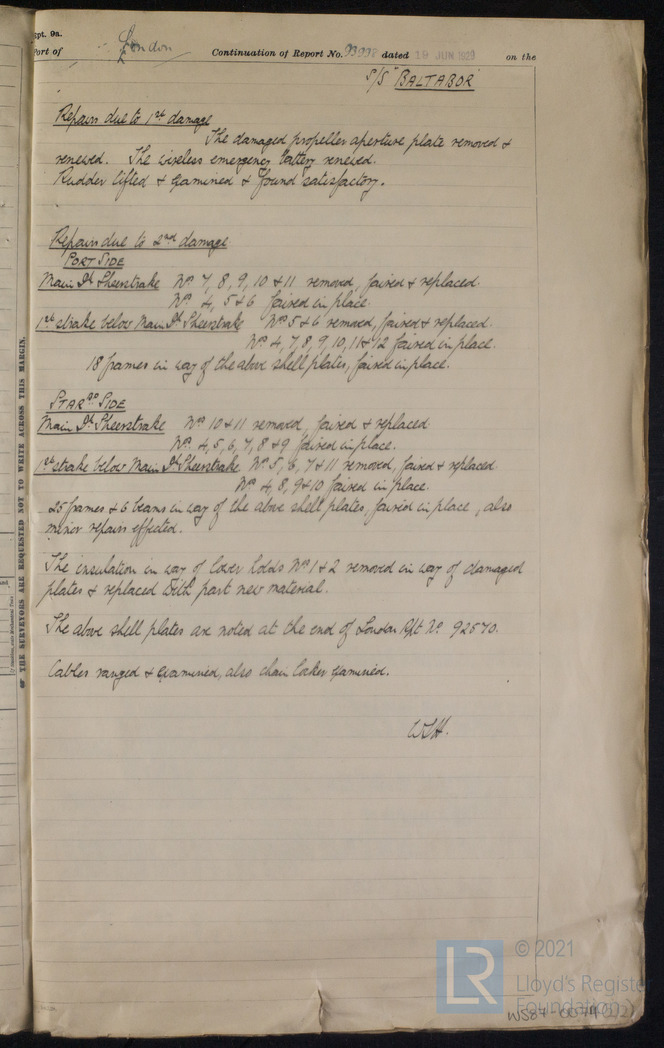 Rpt. 9a.
Port of London Continuation of Report No. 93998 dated 18 JUN 1929 on the
S/S "BALTABOR"
Repairs due to 1st damage
The damaged propeller aperture plate removed &
renewed. The wireless emergency battery renewed.
Rudder lifted & examined & found satisfactory.
Repairs due to 2nd damage
PORT SIDE
Main Dk Sheerstrake Nos. 7, 8, 9, 10 & 11 removed, faired & replaced
Nos. 4, 5 & 6 faired in place.
1st strake below Main Dk Sheerstrake Nos. 5 & 6 removed, faired & replaced.
Nos. 4, 7, 8, 9, 10, 11 & 12 faired in place.
18 frames in way of the above shell plates, faired in place.
STARBD SIDE
Main Dk Sheerstrake Nos. 10 & 11 removed, faired & replaced
Nos. 4, 5, 6, 7, 8 & 9 faired in place.
1st strake below Main Dk Sheerstrake Nos. 5, 6, 7 & 11 removed, faired & replaced
Nos. 4, 8, 9 & 10 faired in place.
25 frames & 6 beams in way of the above shell plates, faired in place, also
minor repairs effected.
The insulation in way of lower holds Nos. 1 & 2 removed in way of damaged
plates & replaced with part new material.
The above shell plates are noted at the end of London Rpt No. 92570.
Cables ranged & examined, also chain locker examined.
OF THE SURVEYORS ARE REQUESTED NOT TO WRITE ACROSS THIS MARGIN.
LR © 2021
Lloyd's Register
Foundation
W587-0074 (2/2)